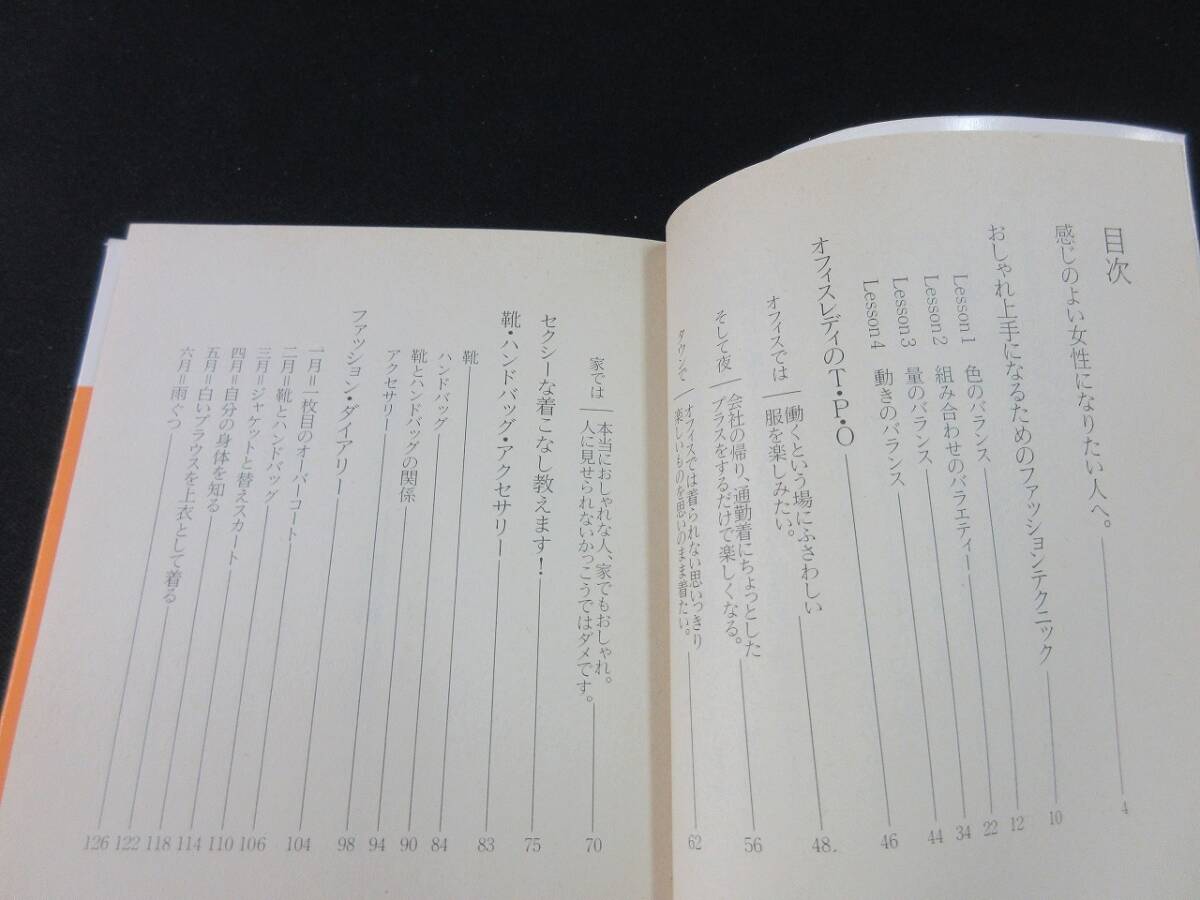 目次
感じのよい女性になりたい人へ。 4
おしゃれ上手になるためのファッションテクニック 10
Lesson 1 色のバランス 12
Lesson 2 組み合わせのバラエティー 22
Lesson 3 量のバランス 34
Lesson 4 動きのバランス 44
オフィスレディのT・P・O 46
オフィスでは 働くという場にふさわしい
服を楽しみたい。 48
そして夜 会社の帰り、通勤着にちょっとした
プラスをするだけで楽しくなる。 56
タウンで オフィスでは着られない思いっきり
楽しいものを思いのまま着たい。 62
家では 本当におしゃれな人、家でもおしゃれ。
人に見せられないかっこうではダメです。 70
セクシーな着こなし教えます! 75
靴・ハンドバッグ・アクセサリー 83
靴 84
ハンドバッグ 90
靴とハンドバッグの関係 94
アクセサリー 98
ファッション・ダイアリー 104
一月=一枚目のオーバーコート 106
二月=靴とハンドバッグ 110
三月=ジャケットと替えスカート 114
四月=自分の身体を知る 118
五月=白いブラウスを上衣として着る 122
六月=雨ぐつ 126